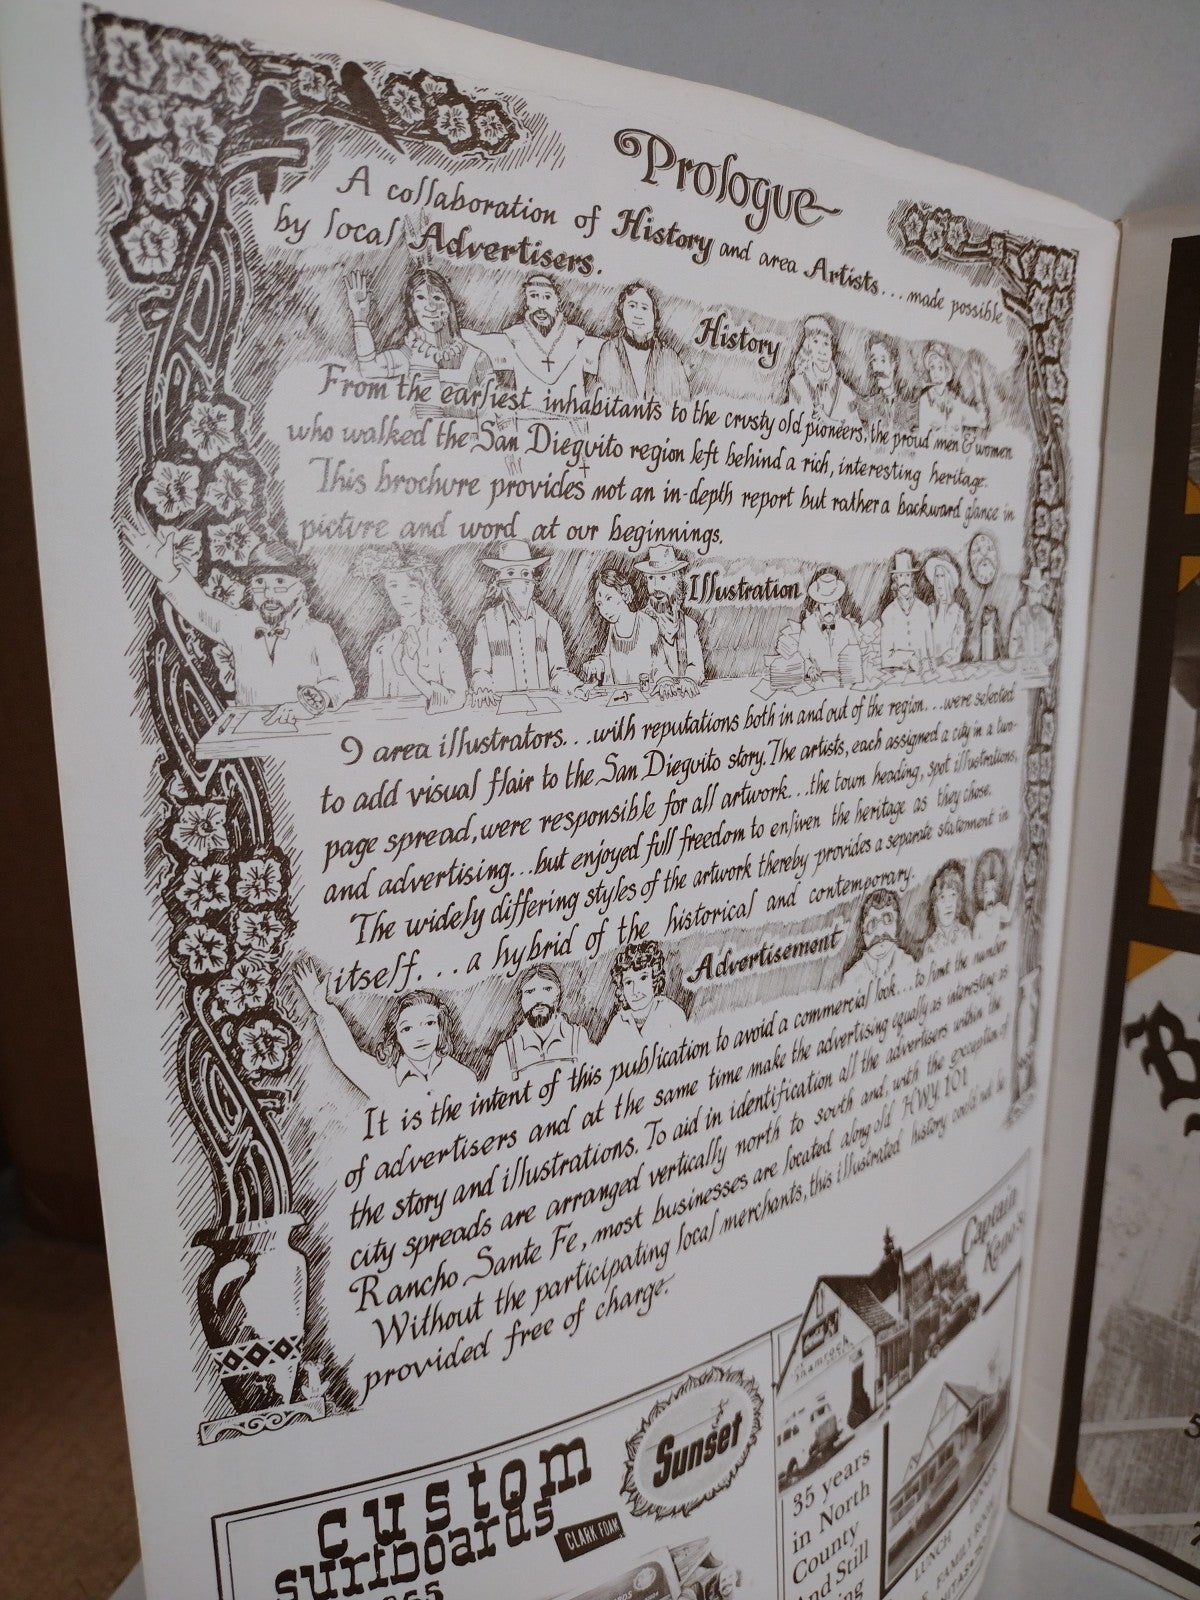 Prologue
A collaboration of History and area Artists...made possible
by local Advertisers.
History
From the earliest inhabitants to the crusty old pioneers, the proud men & women
who walked the San Dieguito region left behind a rich, interesting heritage.
This brochure provides not an in-depth report but rather a backward glance in
picture and word at our beginnings.
Illustration
9 area illustrators...with reputations both in and out of the region...were selected
to add visual flair to the San Dieguito story. The artists, each assigned a city in a two-
page spread, were responsible for all artwork...the town heading, spot illustrations,
and advertising...but enjoyed full freedom to enliven the heritage as they chose.
The widely differing styles of the artwork thereby provides a separate statement in
itself...a hybrid of the historical and contemporary.
Advertisement
It is the intent of this publication to avoid a commercial look...to limit the number
of advertisers and at the same time make the advertising equally as interesting as
the story and illustrations. To aid in identification all the advertisers within the
city spreads are arranged vertically north to south and, with the exception of
Rancho Sante Fe, most businesses are located along old HWY. 101
Without the participating local merchants, this illustrated history could not be
provided free of charge.
custom
surfboards
Sunset
CLARK FOAM
Captain
Keno's
SHAMROCK
35 years
in North
County
And Still
LUNCH
FAMILY ROOM
B